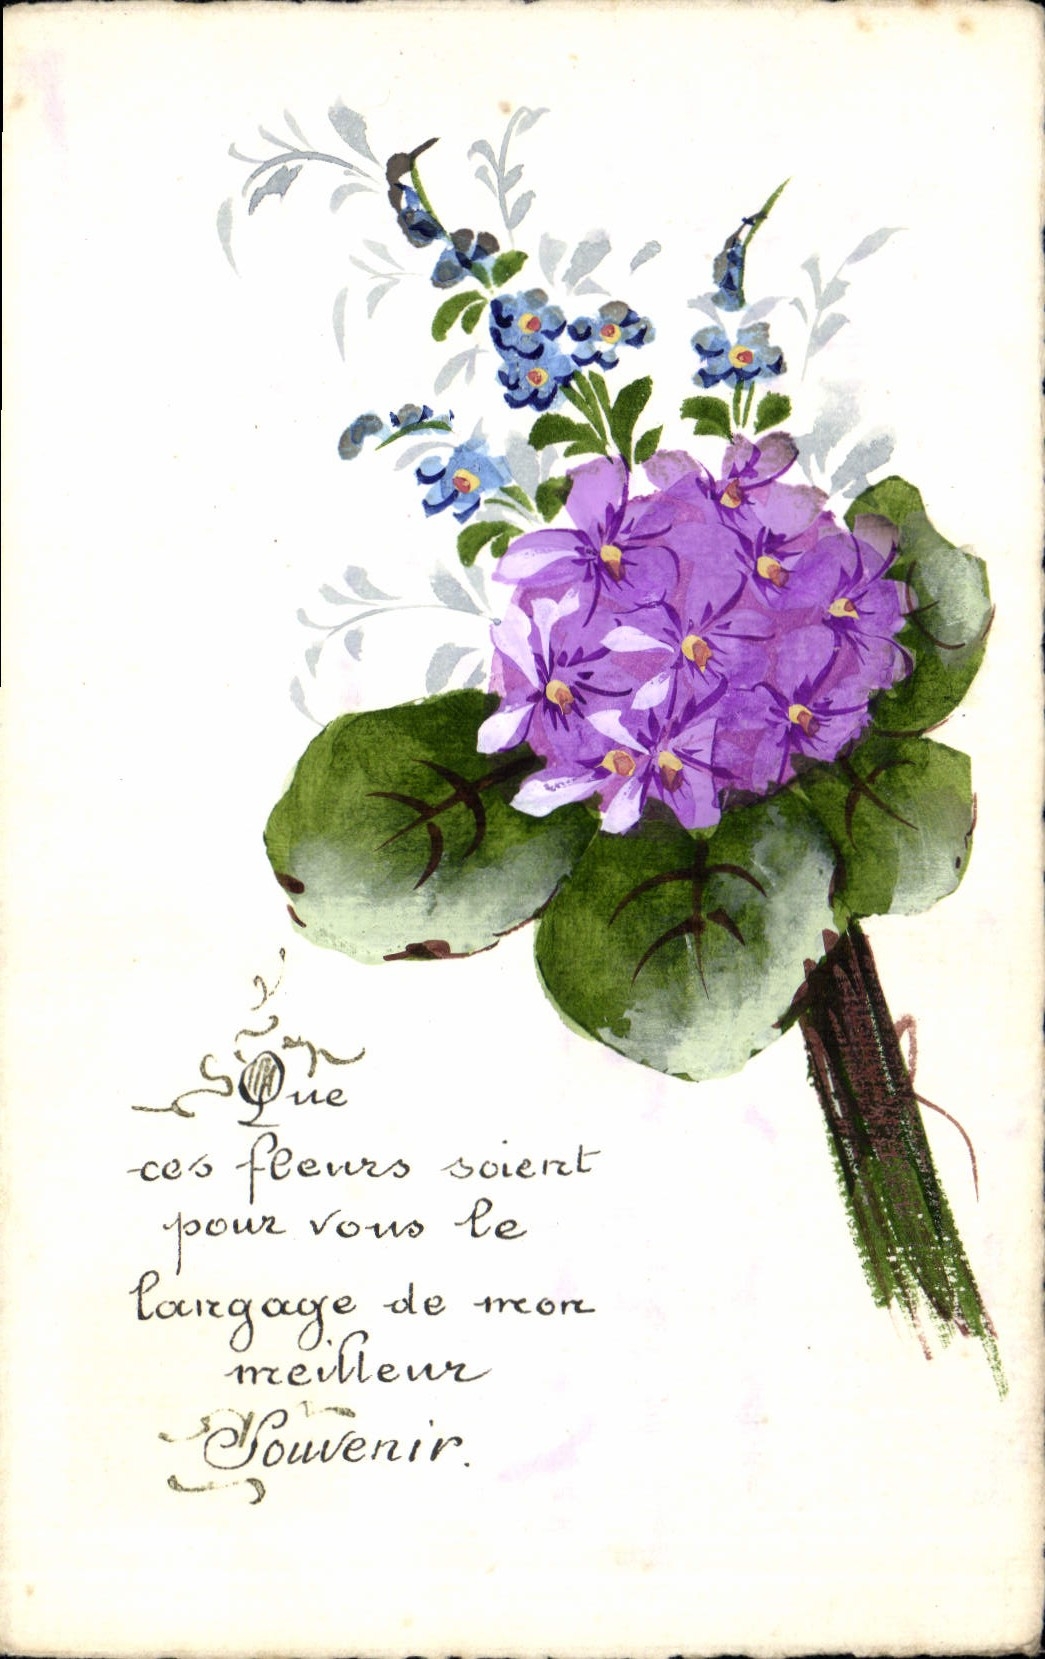 Que
ces fleurs soient
pour vous le
langage de mon
meilleur
Souvenir.